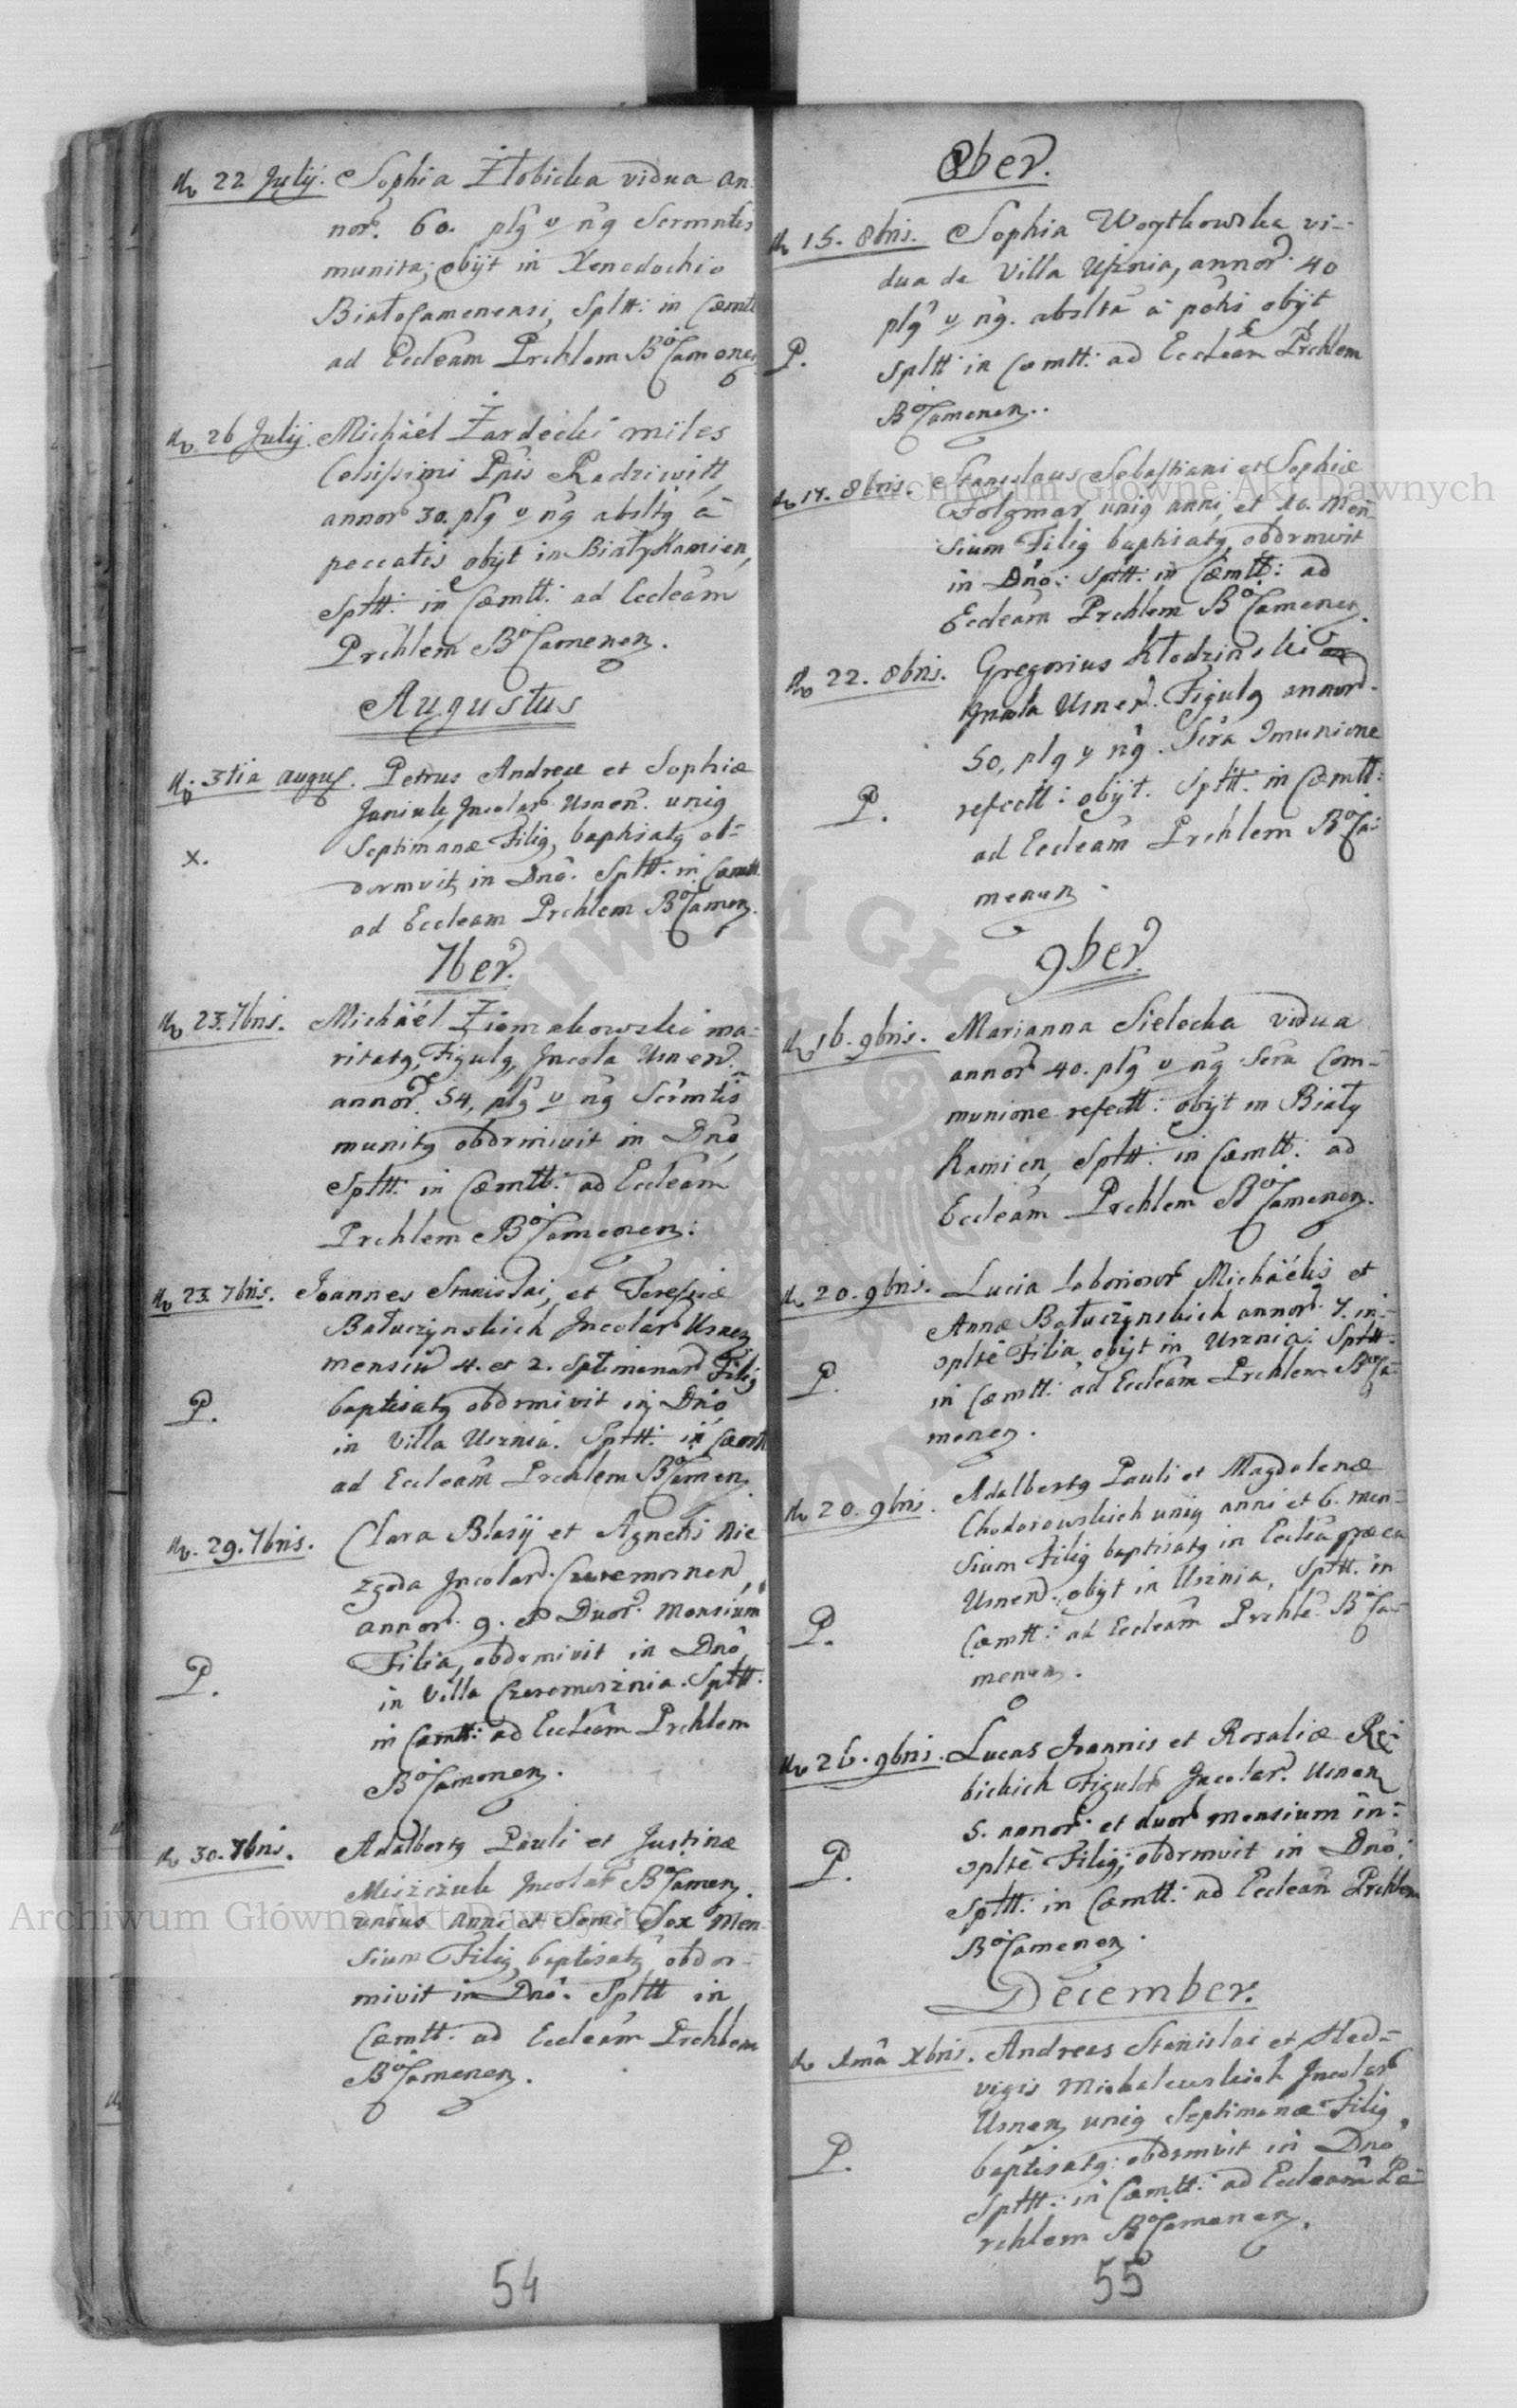 d. 22 Julij. Sophia Żłobicka vidua an-
nor. 60. plg v ng Scrmntis
munita, obijt in Xenodochio
Białocamenensi, Spltt: in Cæmtt
ad Eccleam Prchlem BoCamenen
d. 26 Julij. Michäel Żardecki miles
Celsissimi Ppis Radziwiłł,
annor 30. plg v ng absltg à
peccatis obijt in Biały Kamien,
Spltt: in Cæmtt: ad Eccleam
Prchlem BoCamenen.
Augustus
d. 3tia augus. Petrus Andreæ et Sophiæ
Janiuk, Incolar Usnen. unig
Septimanæ Filig, baptisatg ob-
dormivit in Dno. Spltt: in Cæmtt.
x.
ad Eccleam Prchlem BoCamen.
7ber.
d. 23. 7bris. Michäel Ziemakowski ma-
ritatg, Figulg, Incola Usnen.
annor. 54, plg v ng Scrmtis
munitg obdrmivit in Dno,
Spltt: in Cæmtt: ad Eccleam
Prchlem BoCamenen.
d. 23. 7bris. Joannes Stanislai, et Teresiæ
Bałuczynskich Incolar Usnen
mensiu 4. et 2. Sptimanar Filig
P. baptisatg obdrmivit in Dno
in Villa Usznia. Spltt: in Cæmtt
ad Eccleam Prchlem BoCamen.
d. 29. 7bris. Clara Blasij et Agnetis Nie
zgoda Incolar. Czeremosnen,
annor. 9. et Duor. Mensium
P. Filia, obdrmivit in Dno
in Villa Czeremosznia. Spltt:
in Cæmtt: ad Eccleam Prchlem
BoCamenen.
d. 30. 7bris. Adalbertg Pauli et Justinæ
Miszczuk Incolar BoCamen.
unius Anni et Semi Sex Men-
sium Filig, baptisatg obdor-
mivit in Dno. Spltt in
Cæmtt. ad Eccleam Prchlem
BoCamenen.
54
8ber.
d. 15. 8bris. Sophia Woytkowska vi-
dua de Villa Usznia, annor. 40
plg v ng. abslta à pctis obijt
P. Spltt: in Cæmtt: ad Eccleam Prchlem
BoCamenen.
d. 17. 8bris. Stanislaus Sebastiani et Sophiæ
Folgmar unig anni, et 10. Men-
sium Filig baptisatg, obdrmivit
in Dno: Spltt: in Cæmtt: ad
Eccleam Prchlem BoCamenen.
d. 22. 8bris. Gregorius Kłodzinski
Incola Usnen. Figulg annor.
50, plg v ng. Scra Cmunione
P. refectt: obijt. Spltt: in Cæmtt:
ad Eccleam Prchlem BoCa-
menen.
9ber.
d. 16. 9bris. Marianna Sielecka vidua
annor 40. plg v ng Scra Com-
munione refectt: obijt in Biały
Kamien, Spltt: in Cæmtt: ad
Eccleam Prchlem BoCamenen.
d. 20. 9bris. Lucia laborior Michäelis et
Annæ Bałuczynskich annor. 7. in-
cplte Filia, obijt in Usznia: Spltt.
P. in Cæmtt: ad Eccleam Prchlem BoCa-
menen.
d. 20. 9bris. Adalbertg Pauli et Magdalenæ
Chodorowskich unig anni et 6. men-
sium Filig baptisatg in Ecclia græca
Usnen., obijt in Usznia, Spltt. in
P. Cæmtt: ad Eccleam Prchle BoCa-
menen.
d. 26. 9bris. Lucas Joannis et Rosaliæ Re-
bickich Figulor Incolar. Usnen
5. annor. et duor mensium in-
P. cplte Filig, obdrmivit in Dno:
Spltt: in Cæmtt: ad Eccleam Prchlem
BoCamenen.
December.
d. 1ma Xbris. Andreas Stanislai et Hed-
vigis Michalewskich Incolar
Usnen unig Septimanæ Filig,
P. baptisatg: obdrmivit in Dno
Spltt: in Cæmtt: ad Eccleam Pa-
rchlem BoCamenen.
55
Archiwum Główne Akt Dawnych
Archiwum Główne Akt Dawnych